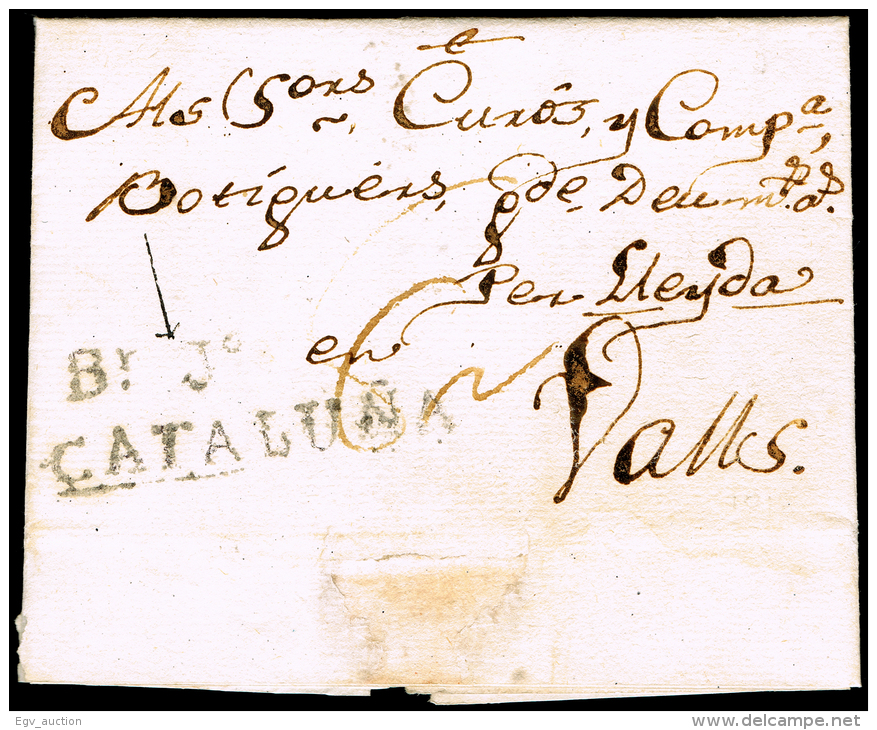 Als Sors Curós, y Compa,
Botiguérs, gde. Deu m. a.
Per Lleyda
en
Valls.
Br. Jo
CATALUÑA
Egv_auction
www.delcampe.net